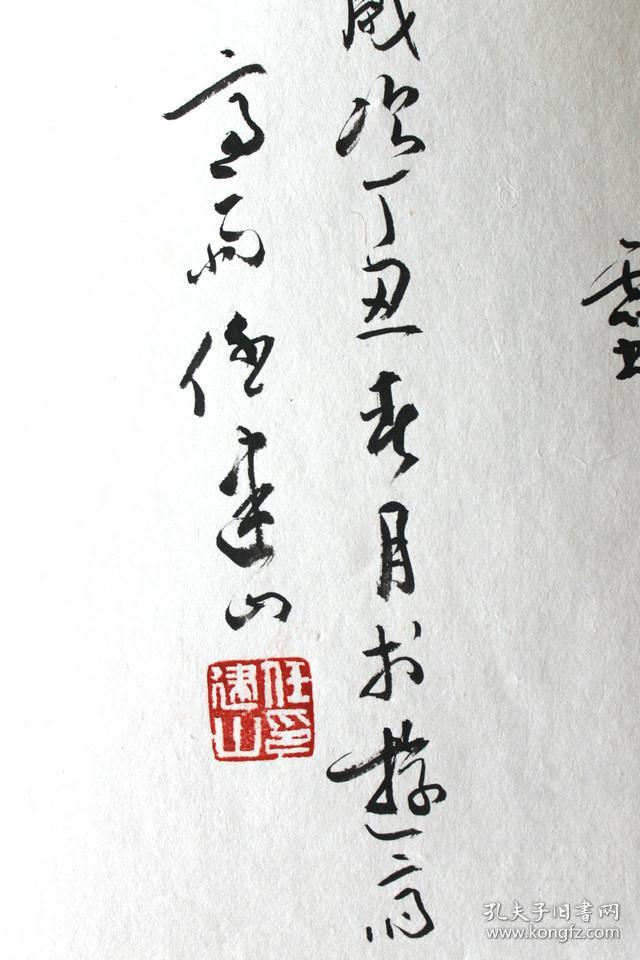 歲次丁丑春月於
任建山
任印建山
孔夫子旧书网
www.kongfz.com